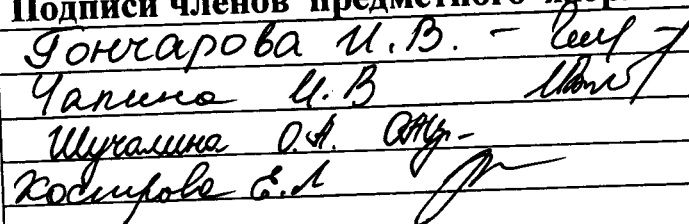 Подписи членов предметного жюри
Гончарова И.В. -
Чапина И.В
Шучалина О.А.
Хосирова Е.А